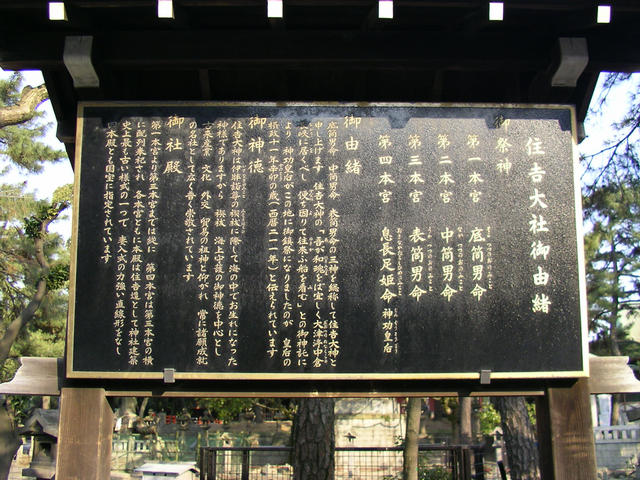 住吉大社御由緒
御祭神
第一本宮 底筒男命
第二本宮 中筒男命
第三本宮 表筒男命
第四本宮 息長足姫命 神功皇后
御由緒
底筒男命 中筒男命 表筒男命の三神を総称して住吉大神と
申し上げます 住吉大神の「吾が和魂をば宜しく大津渟中倉
長峡に居くべし 便ち因りて往来ふ船を看む」との御神託に
より 神功皇后がこの地に御鎮祭になりましたのが 皇后の
摂政十一年辛卯の歳(西暦二一一年)と伝えられています
御神徳
住吉大神は伊弉諾尊の禊祓に際して海の中でお生れになった
神様でありますから 禊祓 海上守護の御神徳を中心とし
産業 文化 外交 貿易の祖神と仰がれ 常に諸願成就
の名社として広く普く崇敬されています
御社殿
第一本宮より第三本宮までは縦に 第四本宮は第三本宮の横
に配列奉祀され 各本宮ともに本殿は住吉造として神社建築
史上最も古い様式の一つで 妻入式の力強い直線形をなし
四本殿とも国宝に指定されています